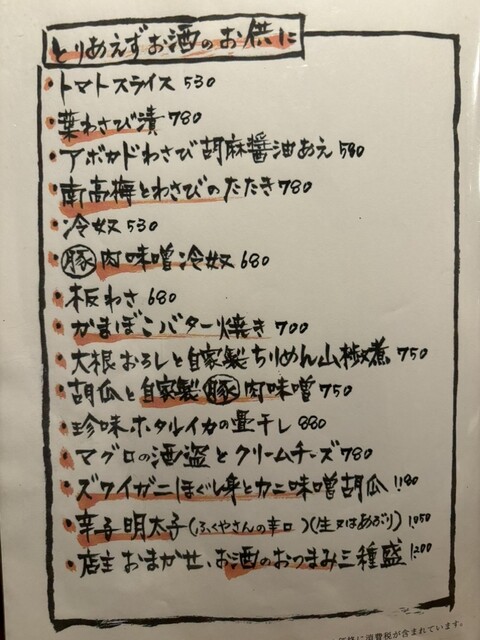 とりあえずお酒のお供に
・トマトスライス 530
・葉わさび漬 780
・アボカドわさび胡麻醤油あえ 580
・南高梅とわさびのたたき 780
・冷奴 530
・豚肉味噌冷奴 680
・板わさ 680
・かまぼこバター焼き 700
・大根おろしと自家製ちりめん山椒煮 750
・胡瓜と自家製豚肉味噌 750
・珍味ホタルイカの畳干し 880
・マグロの酒盗とクリームチーズ 780
・ズワイガニほぐし身とカニ味噌胡瓜 1,180
・辛子明太子(ふくやさんの辛口)(生又はあぶり) 1,050
・店主おまかせ、お酒のおつまみ三種盛 1,200
に消費税が含まれています。